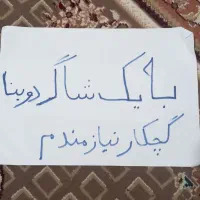 با یک شاگرد و بنا
گچکار نیازمندم